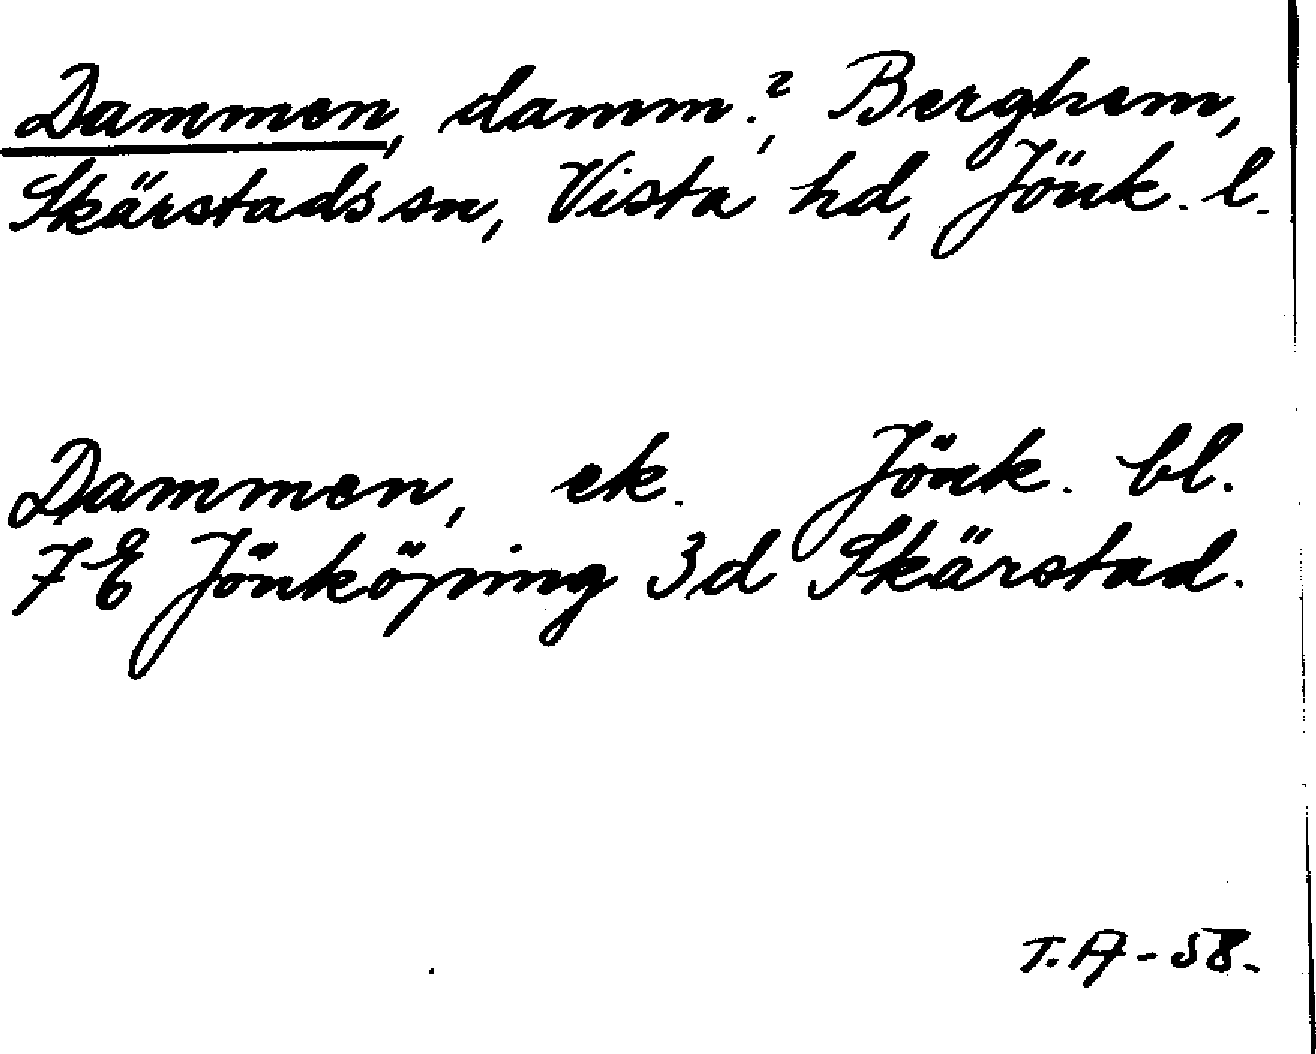 Dammen, damm?, Berghem,
Skärstads sn, Vista hd, Jönk. l.
Dammen, ek. Jönk. bl.
7 E Jönköping 3d Skärstad.
T. A - 58.